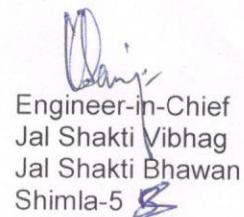 Engineer-in-Chief
Jal Shakti Vibhag
Jal Shakti Bhawan
Shimla-5